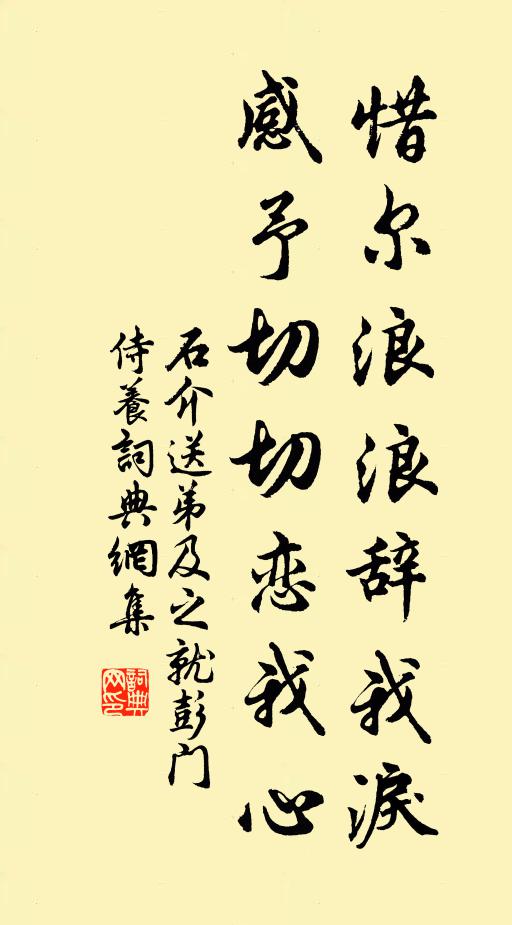 惜尔浪浪辞我淚
感予切切恋我心
石介送弟及之就彭门
侍養詞典網集
詞典網印